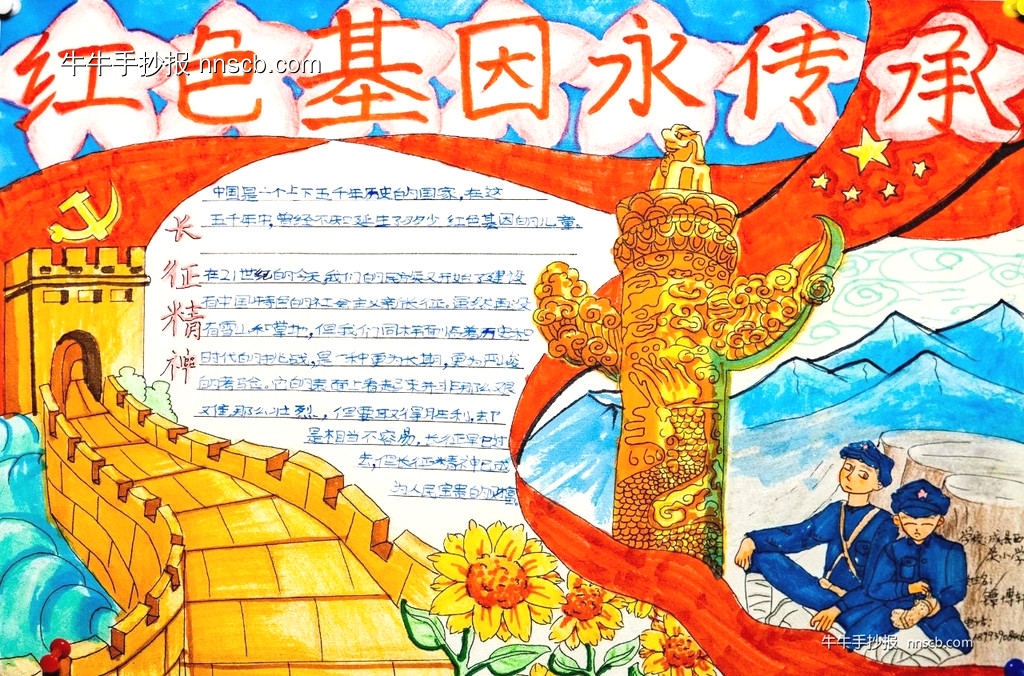 红色基因永传承
牛牛手抄报 nnscb.com
长征精神
中国是一个上下五千年历史的国家,在这
五千年中,曾经不知诞生了多少红色基因的儿童。
在21世纪的今天,我们的民族又开始了建设
有中国特色的社会主义新长征,虽然再没
有雪山和草地,但我们同样面临着历史和
时代的挑战,是一种更为长期,更为严峻
的考验。它的表面上看起来并非那么艰
难,那么壮烈.,但要取得胜利,却
是相当不容易,长征早已过
去,但长征精神已成
为人民宝贵的财富。
学校:成县西
关小学
姓名:
谭博轩
牛牛手抄报 nnscb.com